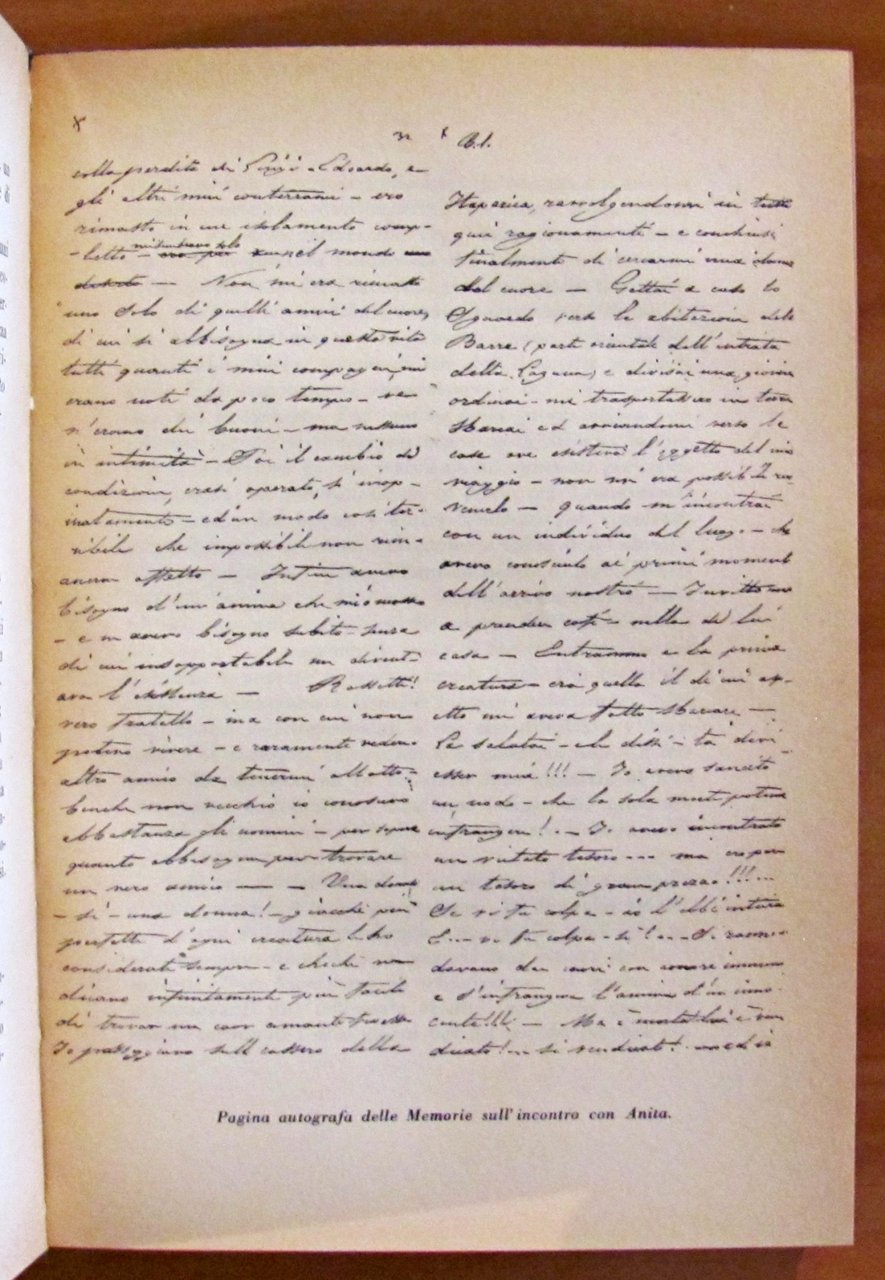 colla perdita di Luigi - Edoardo, e
gli altri miei conterranei - ero
rimasto in un isolamento comp-
-letto - mi sembravo solo nel mondo
deserto — Non mi era rimasto
uno solo di quelli amici del cuore,
di cui si abbisogna in questa vita
tutti quanti i miei compagni, mi
erano noti da poco tempo - ve
n'erano di buoni - ma nessuno
in intimità - Poi il cambio di
condizione, erasi operato, sì inop-
inatamente - ed in modo così ter-
ribile che impossibile non rim-
anerne affetto — Infin avevo
bisogno d'un'anima che mi amasse
- e n avevo bisogno subito - senza
di cui insopportabile mi divent-
ava l'esistenza — Rossetti!
vero fratello - ma con cui non
potevo vivere - e raramente vedere
altro amico da tenermi allotto
benché non vecchio io conoscevo
abbastanza gli uomini - per sapere
quanto abbisogna per trovare
un vero amico — — Una donna
- sì - una donna! - giacché più
perfetta d'ogni creatura l'ho
considerata sempre - e chechè ne
dicano infinitamente più facile
di trovar un cuor amante fra esse
Io passeggiavo sull cassero della
B.l.
Itaparica, ravvolgendomi in tutti
quei ragionamenti - e conchiusi
finalmente di cercarmi una donna
del cuore — Gettai a caso lo
Sguardo verso le abitazioni della
Barra (parte orientale dell'intrata
della Laguna) e divisai una giovine
ordinai - mi trasportassero in terra
Sbarcai ed avviandomi verso le
case ove esisteva l'oggetto del mio
viaggio - non m'era possibile rin-
venirlo - quando m'incontrai
con un individuo del luogo - che
avevo conosciuto ai primi momenti
dell'arrivo nostro — Invittommi
a prender caffè nella di lui
casa — Entrammo e la prima
creatura - era quella il di cui asp-
etto mi aveva fatto sbarcare —
La salutai - le dissi - tu devi
esser mia!!! — Io avevo sancito
un nodo - che la sola morte poteva
infrangere! .. Io avevo incontrato
un vietato tesoro ... ma cropure
un tesoro di gran prezzo!!! ...
Se vi fu colpa - io l'ebbi intiera
E... vi fu colpa - sì! ... Si ranno-
davano due cuori con amore immenso
e s'infrangeva l'anima d'un inno-
cente!!! - Ma è morta! lui è ven-
dicato! .. si vendicato! ..
Pagina autografa delle Memorie sull'incontro con Anita.